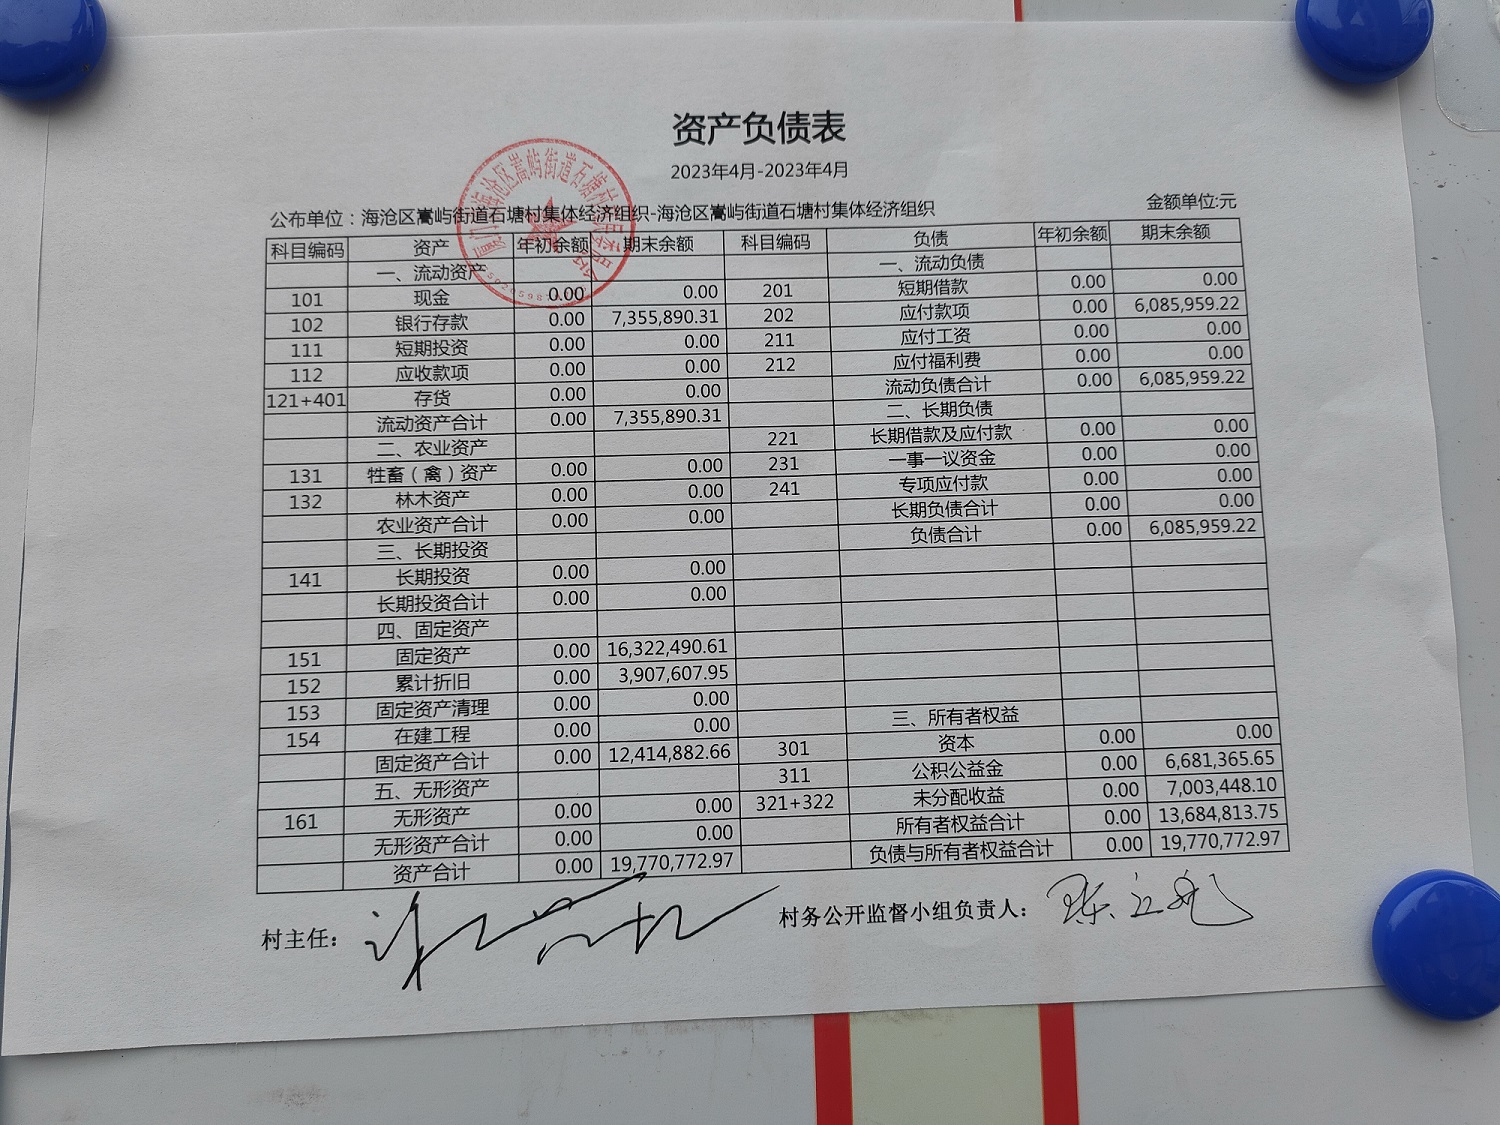 资产负债表
2023年4月-2023年4月
公布单位：海沧区嵩屿街道石塘村集体经济组织-海沧区嵩屿街道石塘村集体经济组织 金额单位:元
科目编码 资产 年初余额 期末余额 科目编码 负债 年初余额 期末余额
一、流动资产 一、流动负债
101 现金 0.00 0.00 201 短期借款 0.00 0.00
102 银行存款 0.00 7,355,890.31 202 应付款项 0.00 6,085,959.22
111 短期投资 0.00 0.00 211 应付工资 0.00 0.00
112 应收款项 0.00 0.00 212 应付福利费 0.00 0.00
121+401 存货 0.00 0.00 流动负债合计 0.00 6,085,959.22
流动资产合计 0.00 7,355,890.31 二、长期负债
二、农业资产 221 长期借款及应付款 0.00 0.00
131 牲畜（禽）资产 0.00 0.00 231 一事一议资金 0.00 0.00
132 林木资产 0.00 0.00 241 专项应付款 0.00 0.00
农业资产合计 0.00 0.00 长期负债合计 0.00 0.00
三、长期投资 负债合计 0.00 6,085,959.22
141 长期投资 0.00 0.00
长期投资合计 0.00 0.00
四、固定资产
151 固定资产 0.00 16,322,490.61
152 累计折旧 0.00 3,907,607.95
153 固定资产清理 0.00 0.00 三、所有者权益
154 在建工程 0.00 0.00 301 资本 0.00 0.00
固定资产合计 0.00 12,414,882.66 311 公积公益金 0.00 6,681,365.65
五、无形资产 321+322 未分配收益 0.00 7,003,448.10
161 无形资产 0.00 0.00 所有者权益合计 0.00 13,684,813.75
无形资产合计 0.00 0.00 负债与所有者权益合计 0.00 19,770,772.97
资产合计 0.00 19,770,772.97
村主任： 村务公开监督小组负责人：